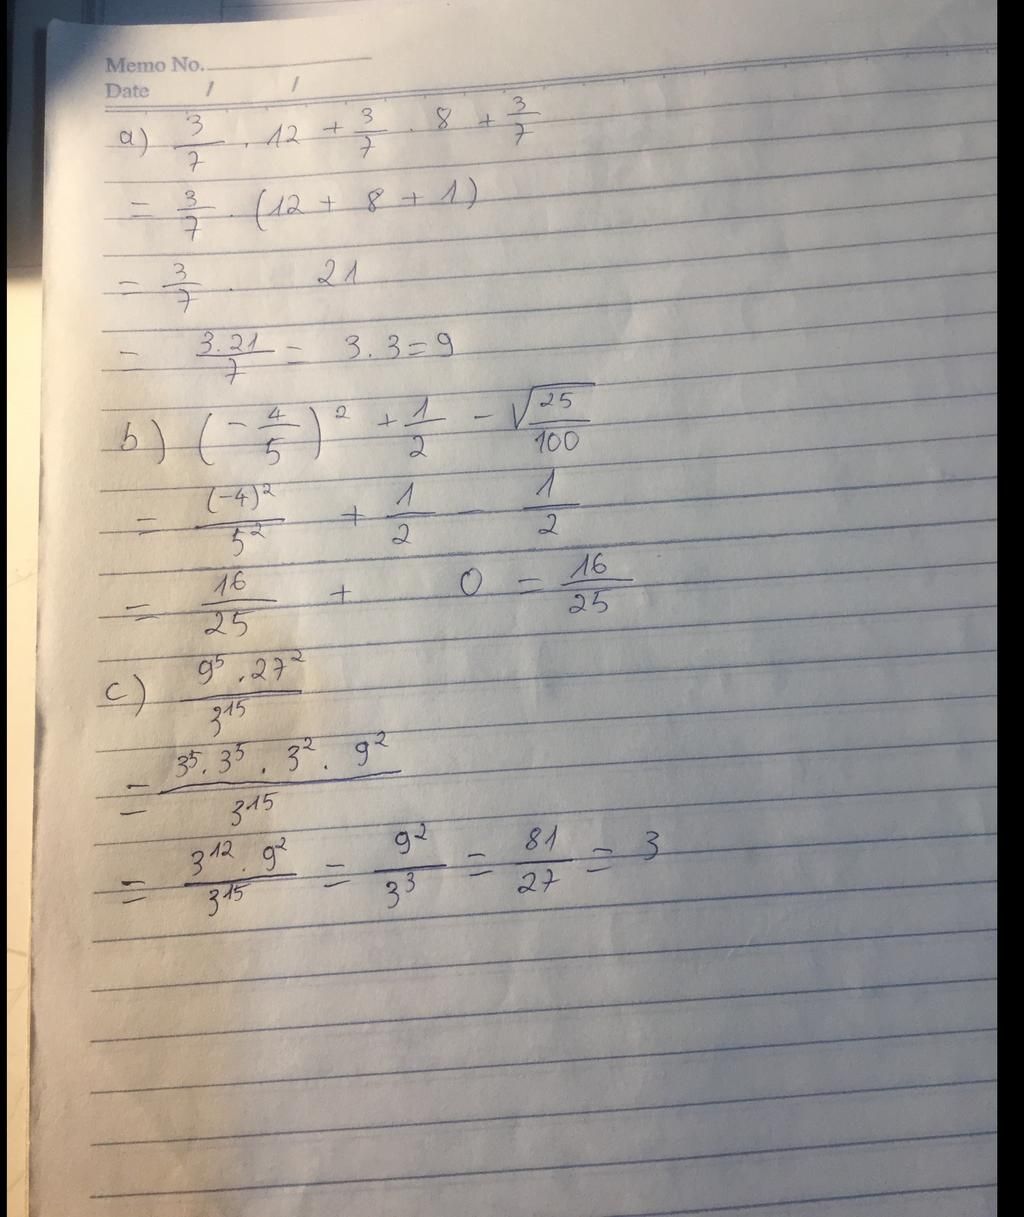 Memo No.
Date / /
a) 3/7 . 12 + 3/7 . 8 + 3/7
= 3/7 . (12 + 8 + 1)
= 3/7 . 21
= 3.21/7 = 3.3=9
b) (-4/5)² + 1/2 - √(25/100)
= (-4)²/5² + 1/2 - 1/2
= 16/25 + 0 = 16/25
c) 9⁵ . 27²/3¹⁵
= 3⁵ . 3⁵ . 3² . 9²/3¹⁵
= 3¹² . 9²/3¹⁵ = 9²/3³ = 81/27 = 3